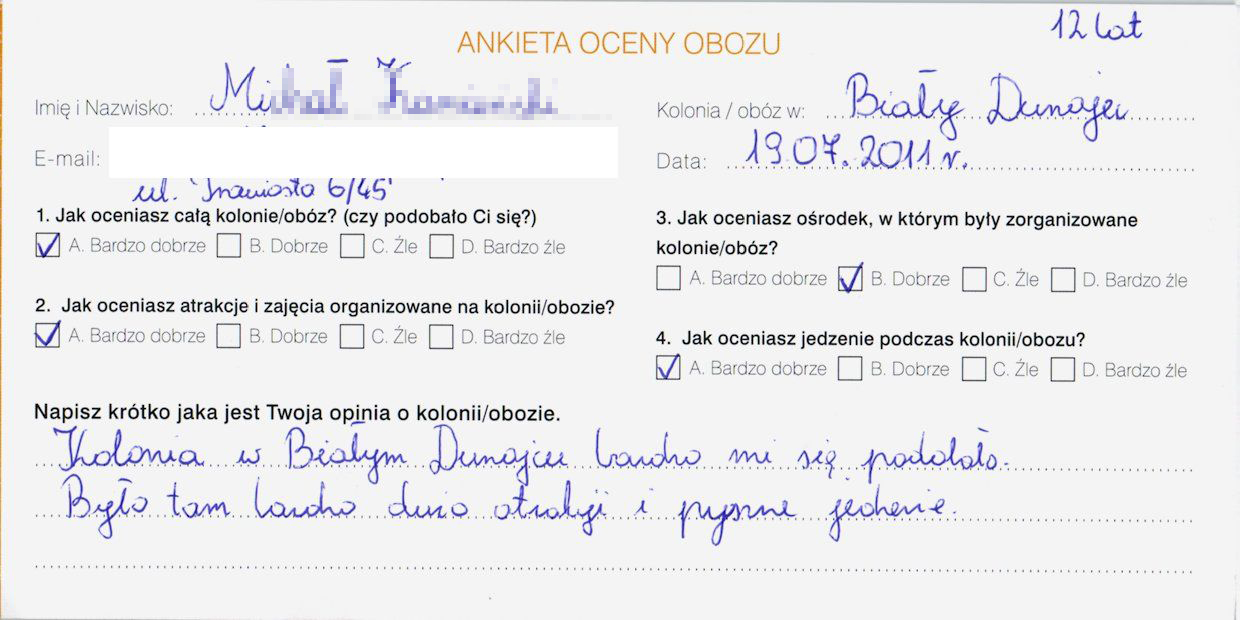 12 lat
ANKIETA OCENY OBOZU
Imię i Nazwisko:
Kolonia / obóz w: Biały Dunajec
E-mail:
Data: 19.07.2011 r.
ul. 6/45
1. Jak oceniasz całą kolonie/obóz? (czy podobało Ci się?)
A. Bardzo dobrze B. Dobrze C. Źle D. Bardzo źle
2. Jak oceniasz atrakcje i zajęcia organizowane na kolonii/obozie?
A. Bardzo dobrze B. Dobrze C. Źle D. Bardzo źle
3. Jak oceniasz ośrodek, w którym były zorganizowane
kolonie/obóz?
A. Bardzo dobrze B. Dobrze C. Źle D. Bardzo źle
4. Jak oceniasz jedzenie podczas kolonii/obozu?
A. Bardzo dobrze B. Dobrze C. Źle D. Bardzo źle
Napisz krótko jaka jest Twoja opinia o kolonii/obozie.
Kolonia w Białym Dunajcu bardzo mi się podobało.
Było tam bardzo dużo atrakcji i pyszne jedzenie.